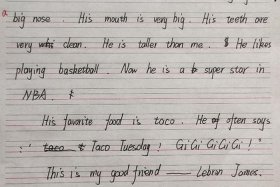 big nose. His mouth is very big. His teeth are
very clean. He is taller than me. He likes
playing basketball. Now he is a super star in
NBA.
His favorite food is toco. He often says
: " Taco Tuesday! GiGiGiGiGi! "
This is my good friend —— Lebran James.